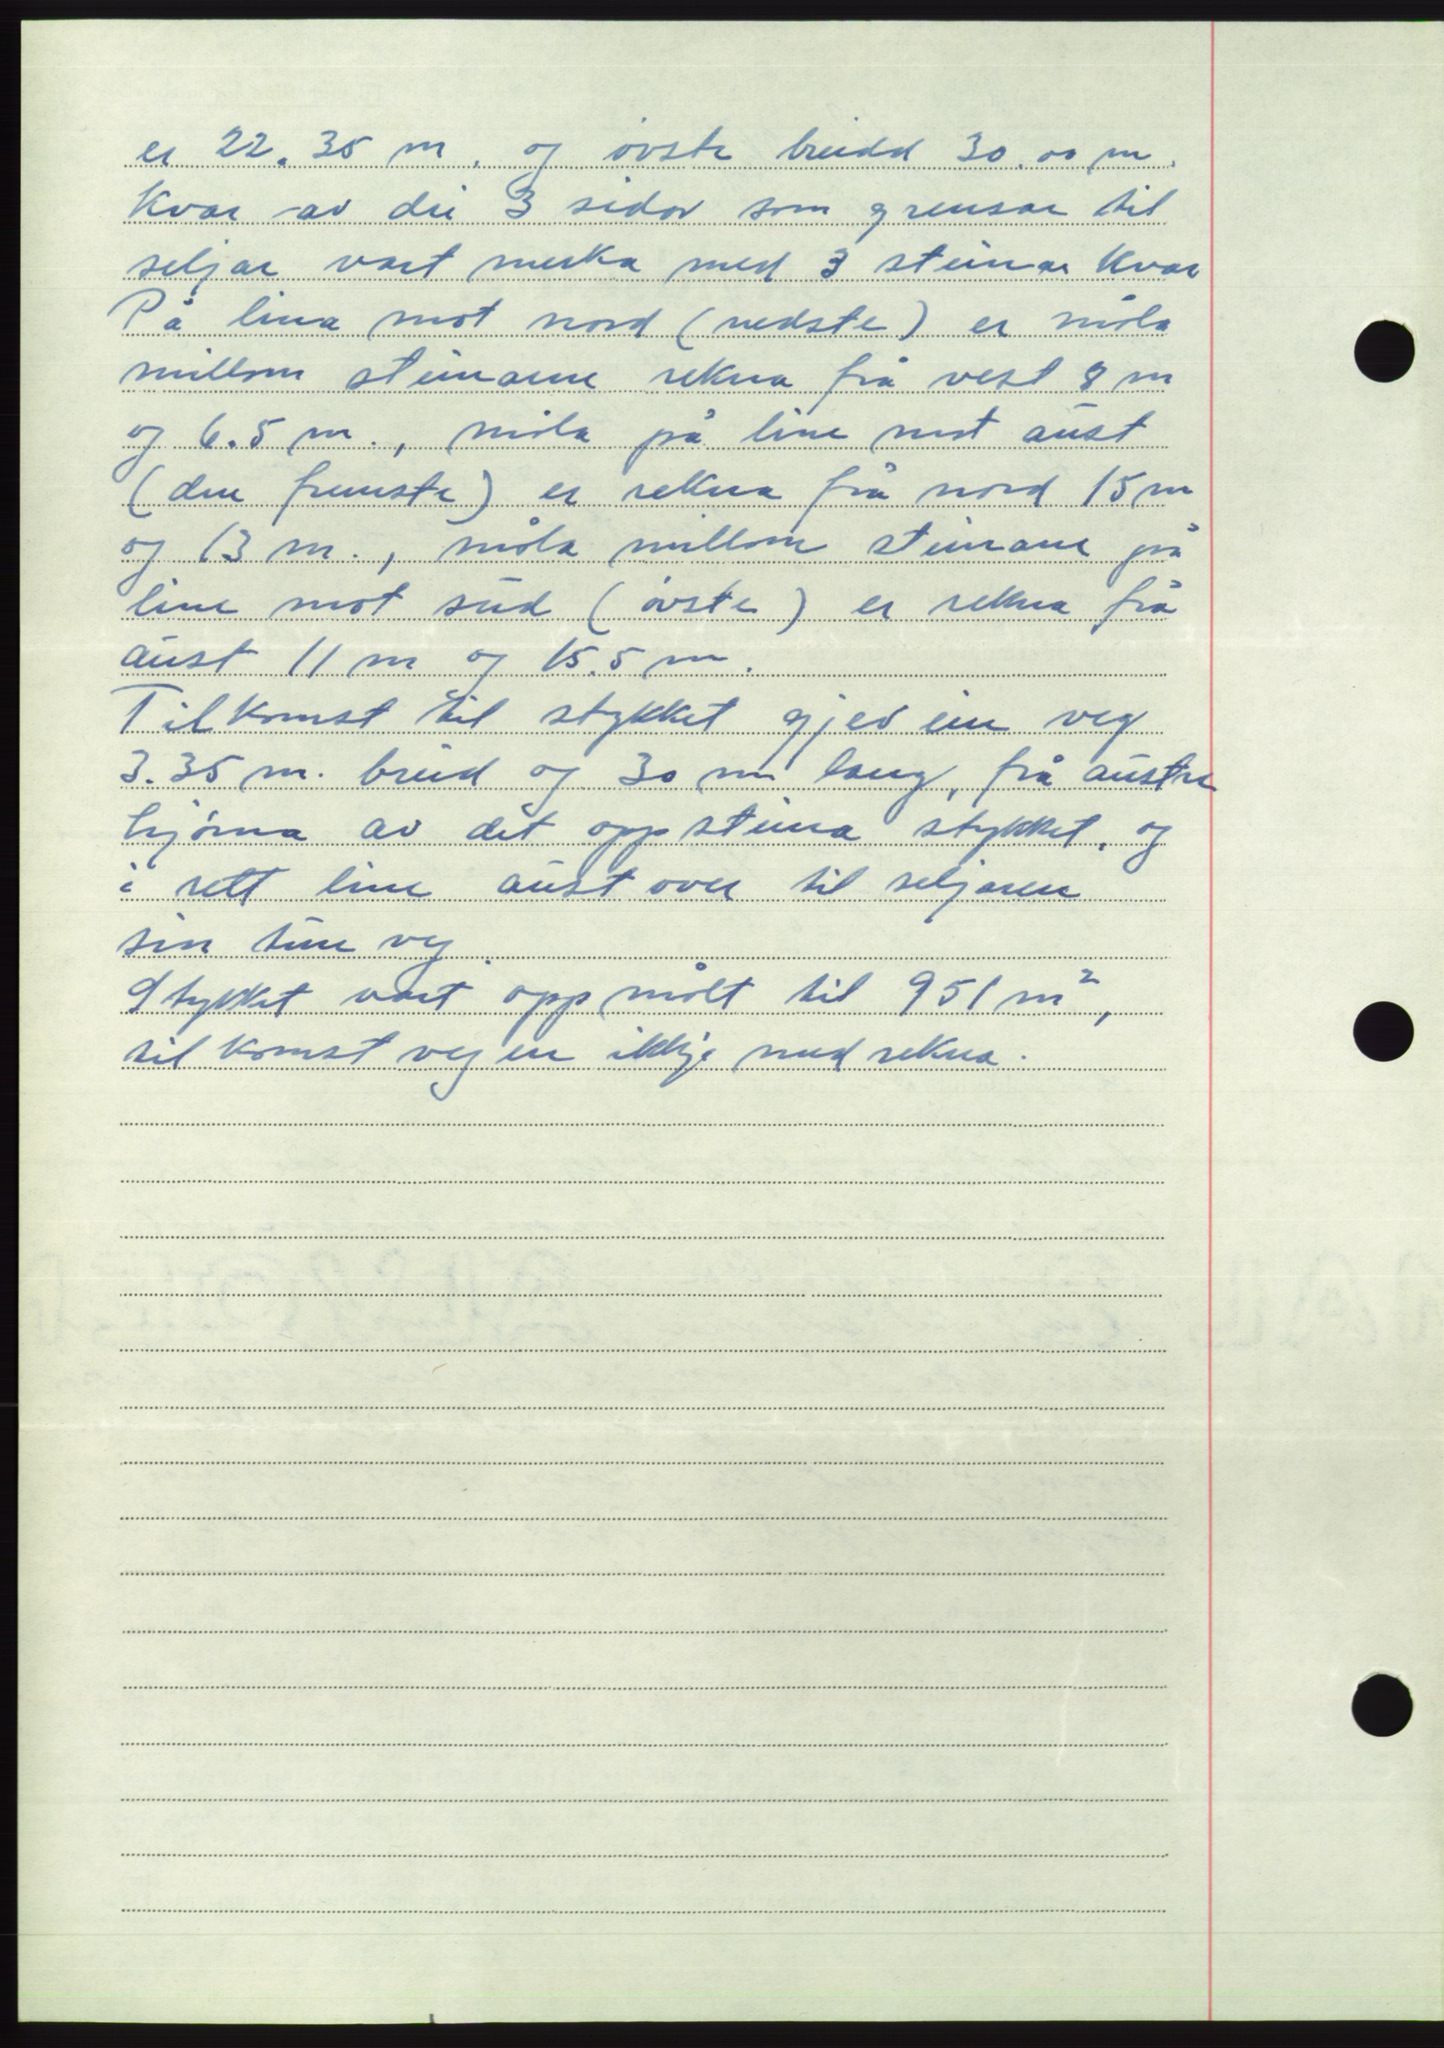 er 22.35 m. og øvste breidd 30.00 m.
Kvar av dei 3 sidor som grensar til
seljar vart merka med 3 steinar kvar
På lina mot nord (nedste) er måla
millom steinane rekna frå vest 8 m
og 6.5 m., måla på line mot aust
(den fremste) er rekna frå nord 15 m
og 13 m., måla millom steinane på
line mot sud (øvste) er rekna frå
aust 11 m og 15.5 m.
Tilkomst til stykket gjev ein veg
3.35 m. breid og 30 m lang, frå austre
hjørna av det oppsteina stykket, og
i rett line austover til seljaren
sin tune veg.
Stykket vart oppmålt til 951 m²,
tilkomstvegen ikkje medrekna.